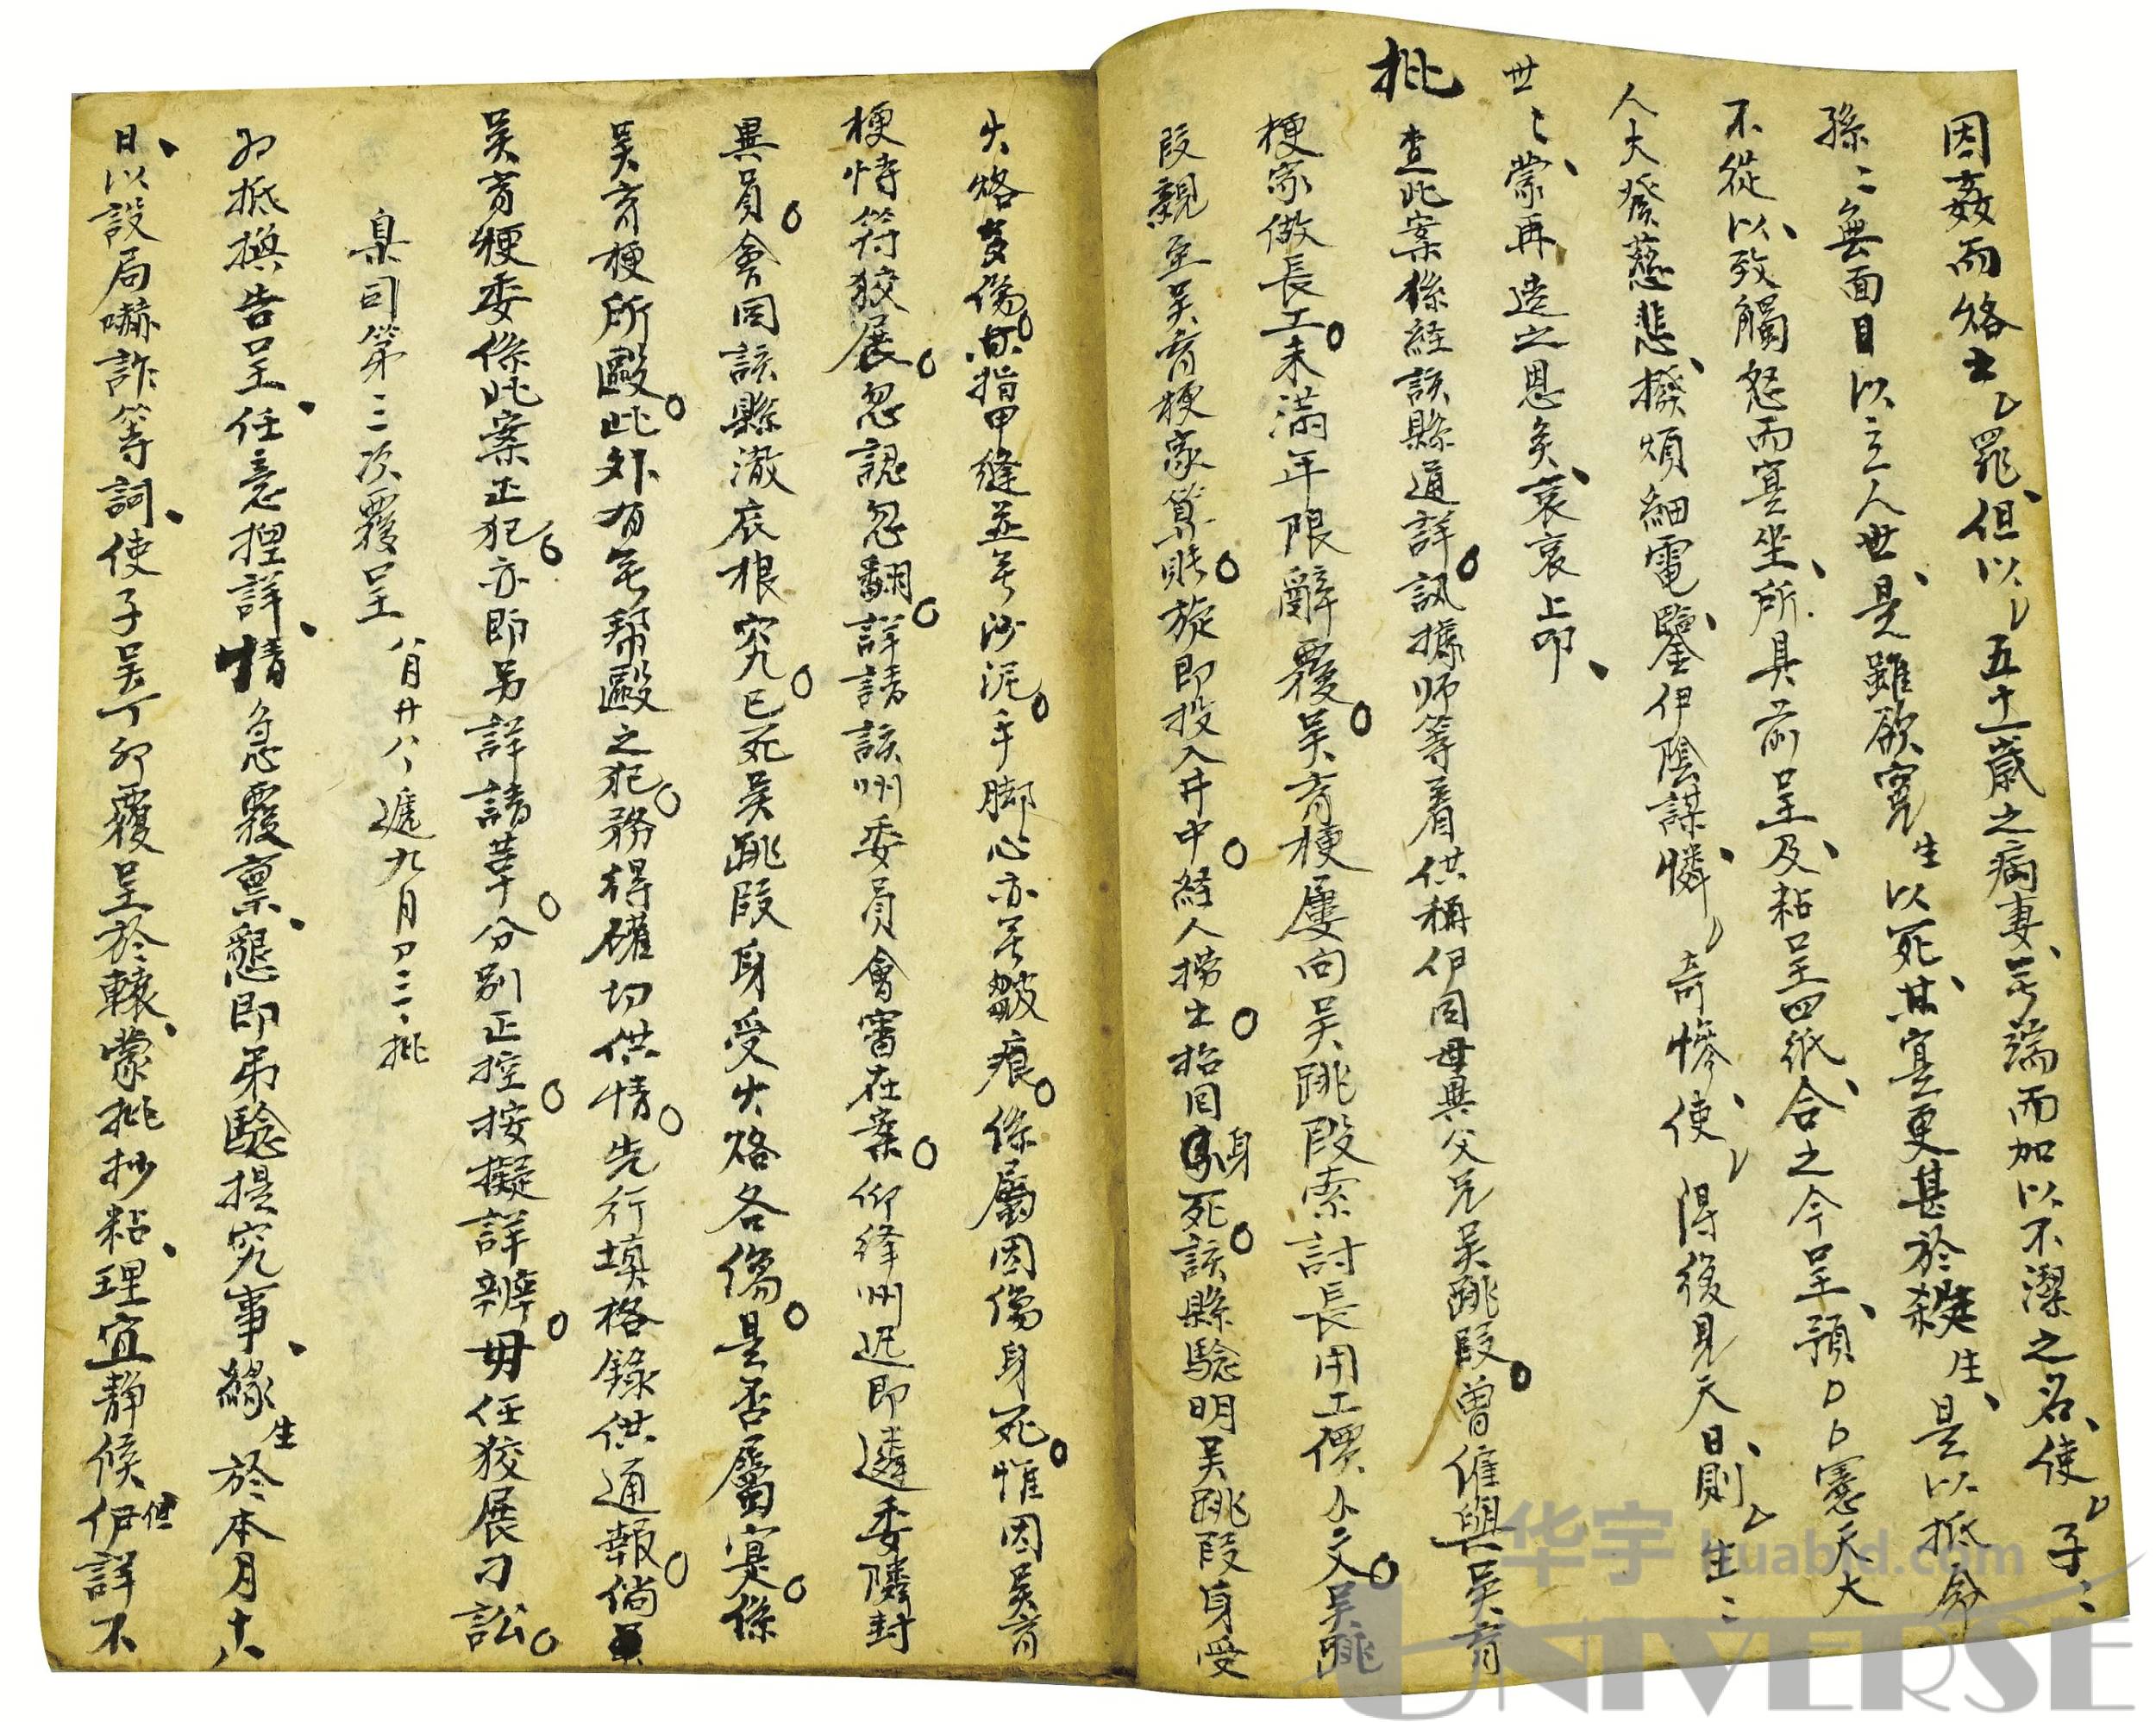 因姦而烙士、罷、但以、五十一歲之病妻、無端而加以不潔之名、使、子〻
孫〻無面目以立人世、是雖欲寬生以死、其寔更甚於殺生、是以抵命
不從以致觸怒而寔坐、所具前呈及粘呈四紙合之今呈預口口憲天大
人大發慈悲、撥煩細電鑒、伊陰謀、憐、奇慘、使、得後見天日、則、生〻
世〻、蒙再造之恩矣、哀哀上叩、
批
查此案係経該縣通詳訊據师等着供稱伊同母異父兄吴跳段曾僱與吴育
梗家做長工未滿年限辭覆吴育梗屢向吴跳段索討長用工價小文吴跳
段親至吴育梗家算賬旋即投入井中経人撈出抬回身死該縣驗明吴跳段身受
火烙多傷点指甲縫並無沙泥手脚心亦無皺痕係屬因傷身死惟因吴育
梗恃符狡展忽認忽翻詳請該州委員會審在案仰绛州迅即遴委隣封
異員會同該縣澈底根究已死吴跳段身受火烙各傷是否屬寔係
吴育梗所毆此外有無幫毆之犯務得確切供情先行填格錄供通報倘
吴育梗委係此案正犯亦即另詳請革分別正控按擬詳辦毋任狡展刁訟
臬司第三次覆呈 八月廿八遞九月初三批
為抵換告呈任意捏詳、情急覆禀、懇即弟驗提究事、緣生於本月十八
日、以設局嚇詐等詞、使子吴丁卯覆呈於轅、蒙批抄粘、理宜静候但伊詳不
华宇 huabid.com
UNIVERSE